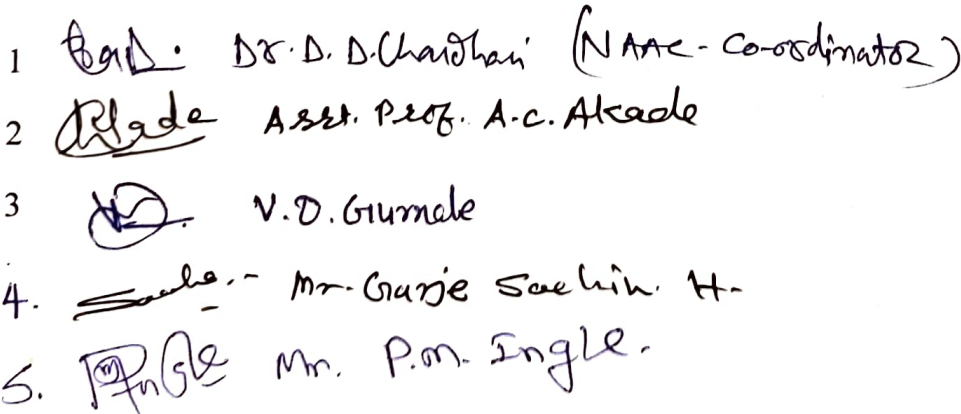 1 Dr. D. D. Chaudhari (NAAC - Co-ordinator)
2 Asst. Prof. A.C. Akade
3 V.D. Giurnale
4. Mr. Garje Sachin. H.
5. Mr. P.M. Ingle.